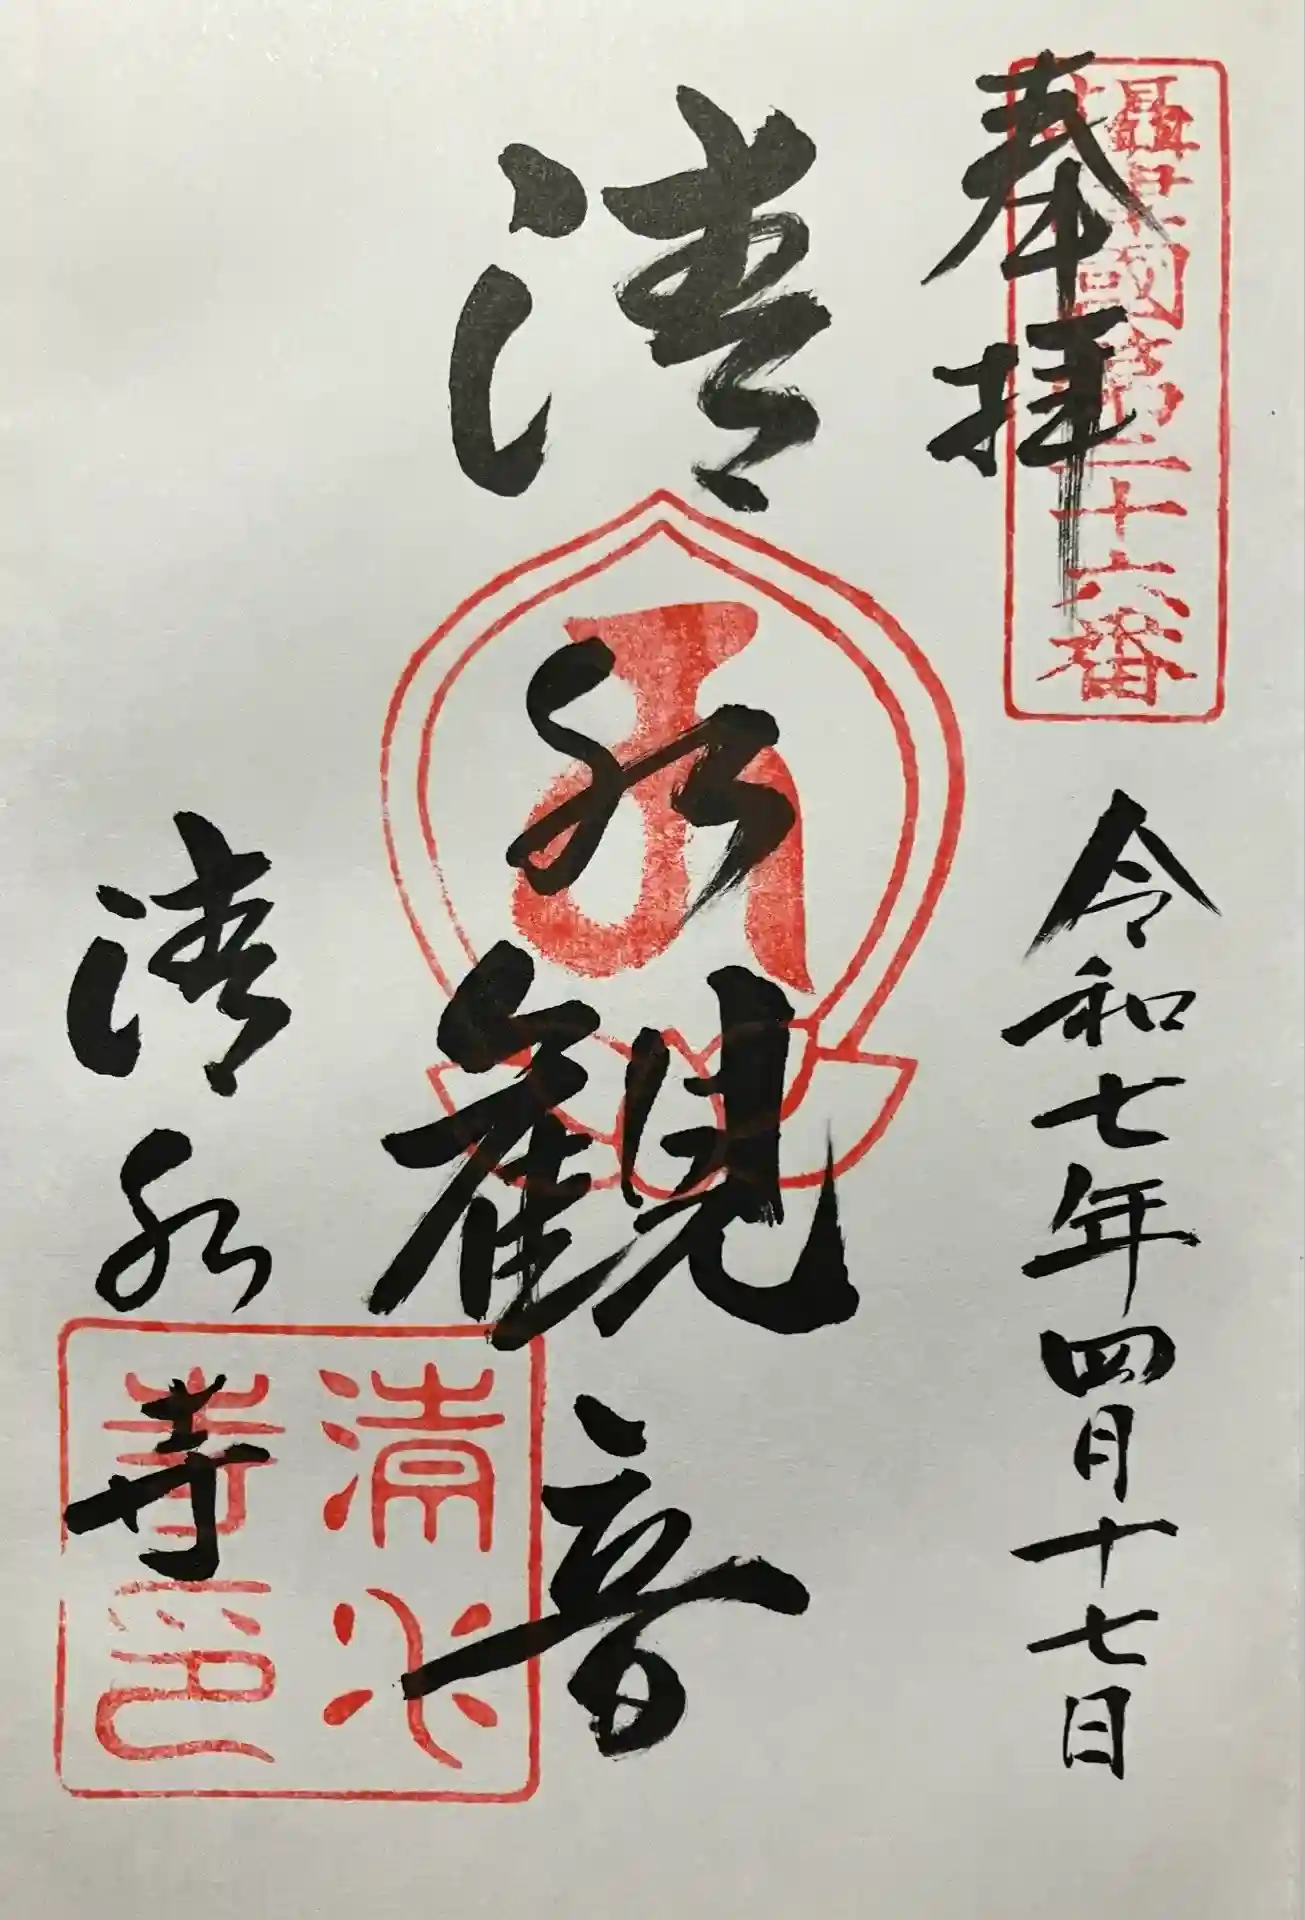 攝津國第二十六番
奉拝
令和七年四月十七日
清水観音
清水寺
清水寺印